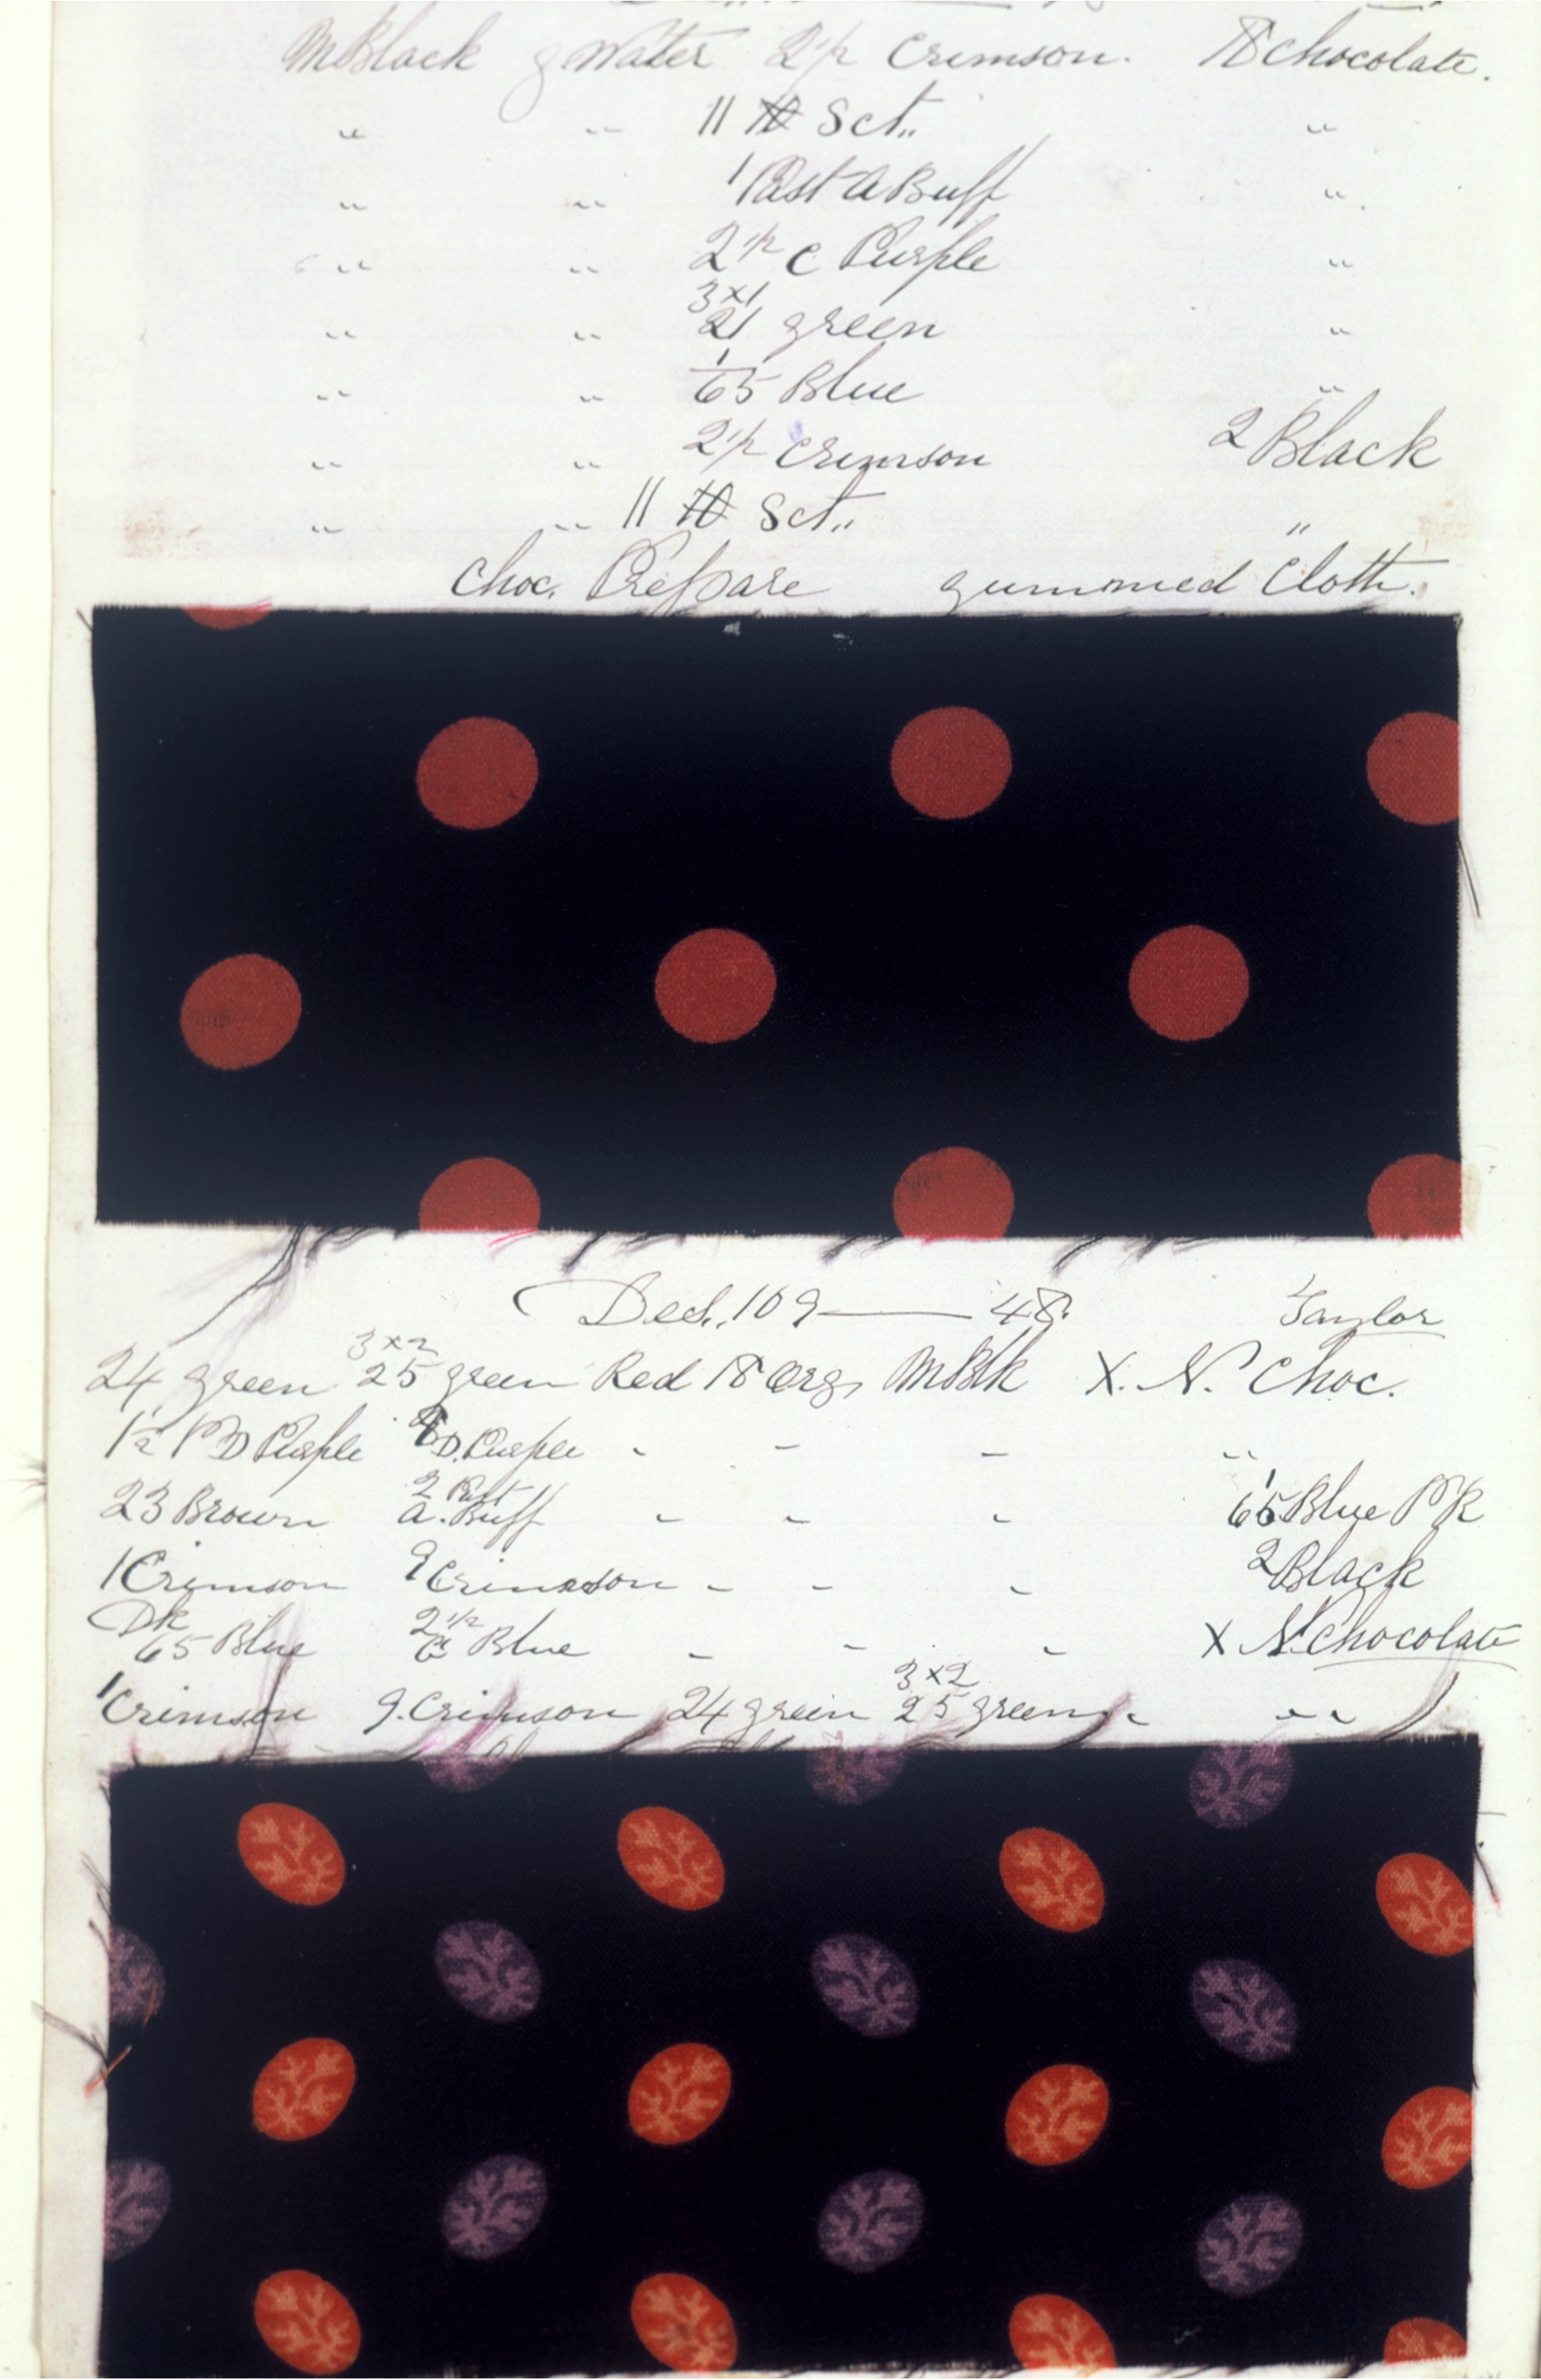 M Black g Water 2 1/2 Crimson. 18 Chocolate.
" " 11 Sct,, "
" " 1 Past A Buff "
" " 2 1/2 C Purple "
" " 3x1 21 green "
" " 1 65 Blue "
" " 2 1/2 Crimson 2 Black
" " 11 Sct,, "
Choc. Prepare gummed Cloth.
Des,, 109 — 48. Taylor
24 green 3x2 25 green Red 18 Org, M Blk X. N. Choc.
1 1/2 P D Purple 8 D. Purple - - - "
23 Brown 2 Past A. Buff - - - 1 65 Blue P R
1 Crimson 9 Crimson - - - 2 Black
Dk 65 Blue 2 1/2 C Blue - - - X N. Chocolate
1 Crimson 9. Crimson 24 green 3x2 25 green, - "